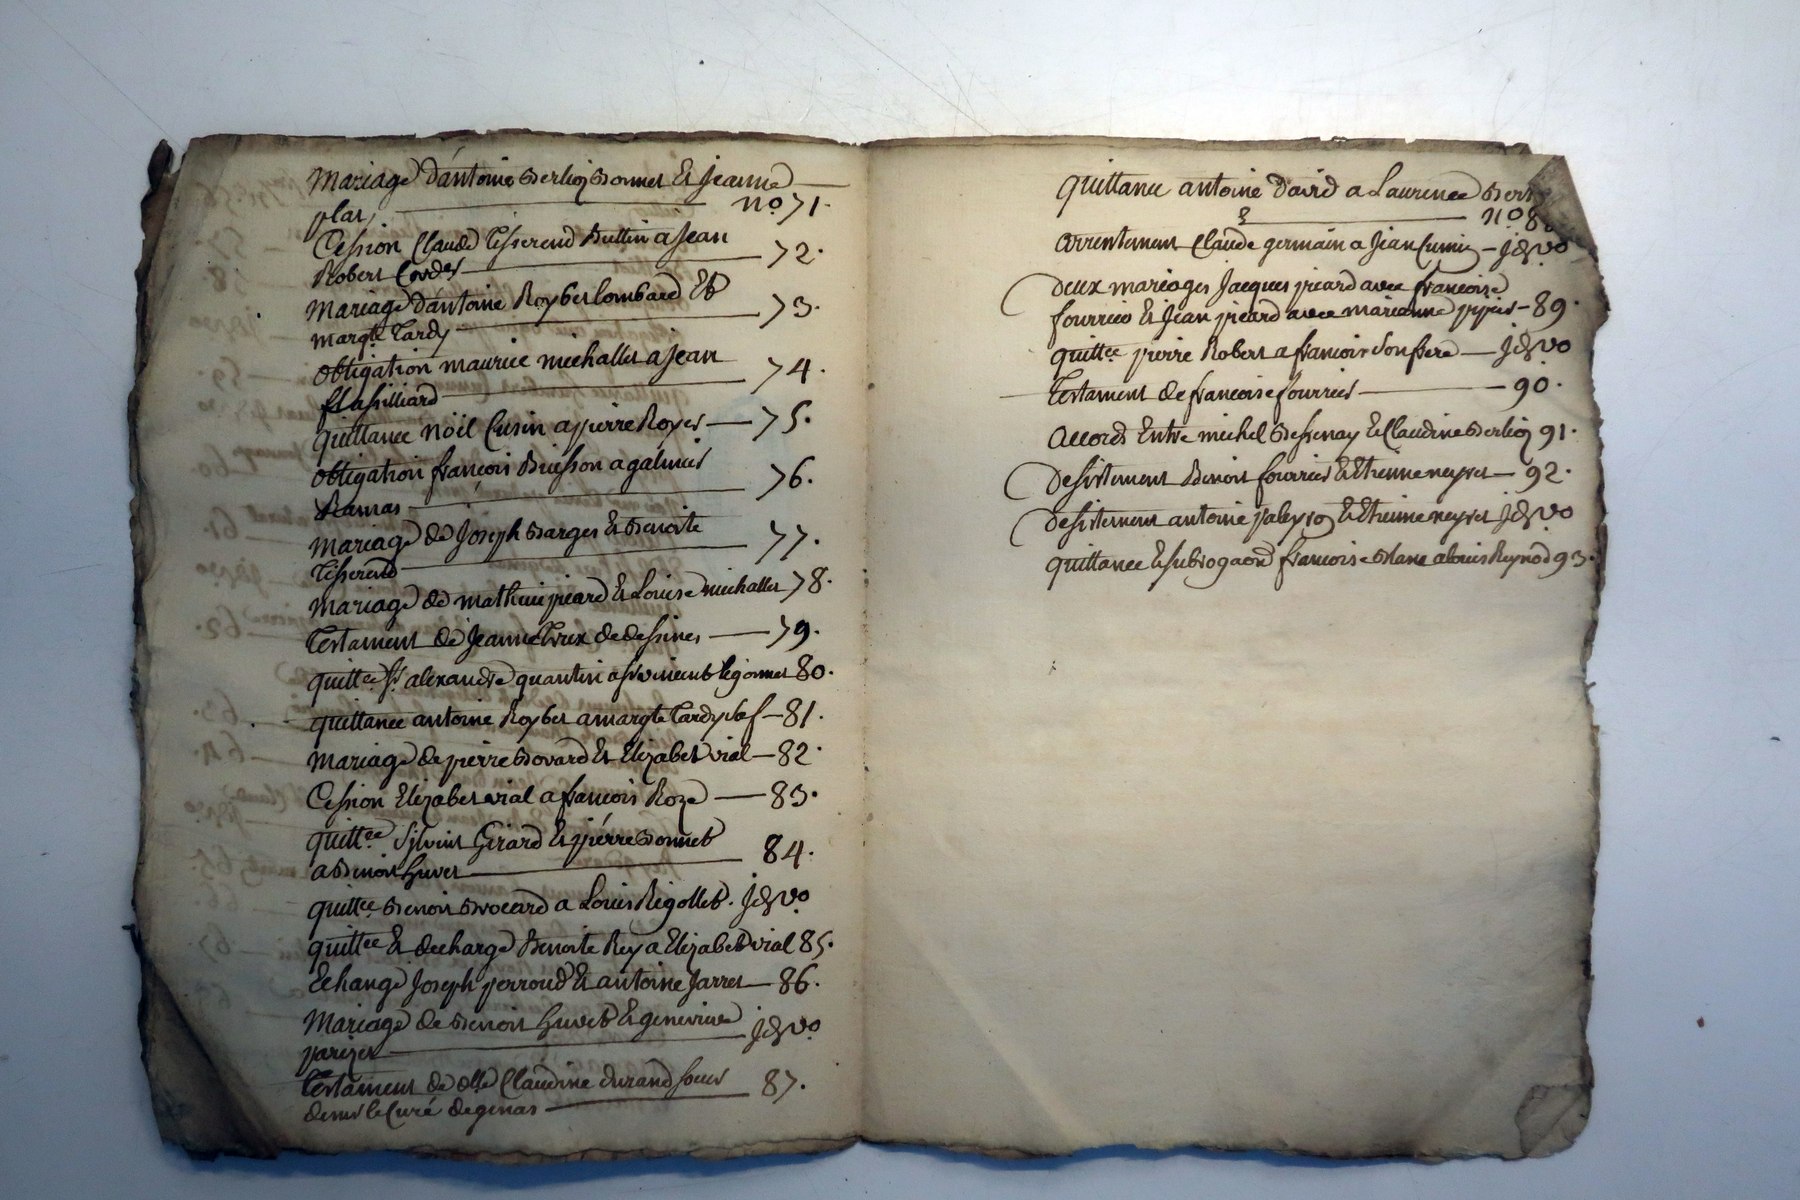 Mariage d'antoine Berlioz Bonnet Et Jeanne
plat, no 71.
Cession Claude Tisserend Buttin a Jean
Robert Cordet 72.
Mariage d'antoine Roybet lombard Et
margte Tardy 73.
obligation maurice michallet a Jean
74.
quittance nöel Cusin a pierre Royer 75.
obligation françois Buisson a
Ramas 76.
Mariage de Joseph Barges Et Benoite
Tisserend 77.
Mariage de mathieu picard Et Louise michallet 78.
Testament de Jeanne Trux de dessines 79.
quittce Sr alexandre quantin a Sr vincent 80.
quittance antoine Roybet a margte Tardy 81.
Mariage de pierre Bovard Et Elizabet vial 82.
Cession Elizabet vial a françois Roze 83.
quittce Silvint Girard Et pierre Bonnet
a Benoit Huvet 84.
quittce Benoit Brocard a Louis Rigollet. id vo
quittce Et decharge Benoite Rey a Elizabet vial 85.
Echange Joseph perroud Et antoine Jarret 86.
Mariage de Benoit Huvet Et genevieve
parizet id vo
Testament de dlle Claudine durand soeur
de mr le Curé de genas 87.
quittance antoine david a Laurence
no
arrentement Claude germain a Jean Cumin id vo
Deux mariages Jacques picard avec françoise
fourrier Et Jean picard avec marianne 89.
quittce pierre Robert a françois son frere id vo
Testament de françoise fourrier 90.
accords Entre michel Bessenay Et Claudine Berlioz 91.
Desistement Benoit fourrier Et Etienne neyret 92.
Desistement antoine Et Etienne neyret id vo
quittance Et subrogaon françoise Blanc a louis Reynod 93.